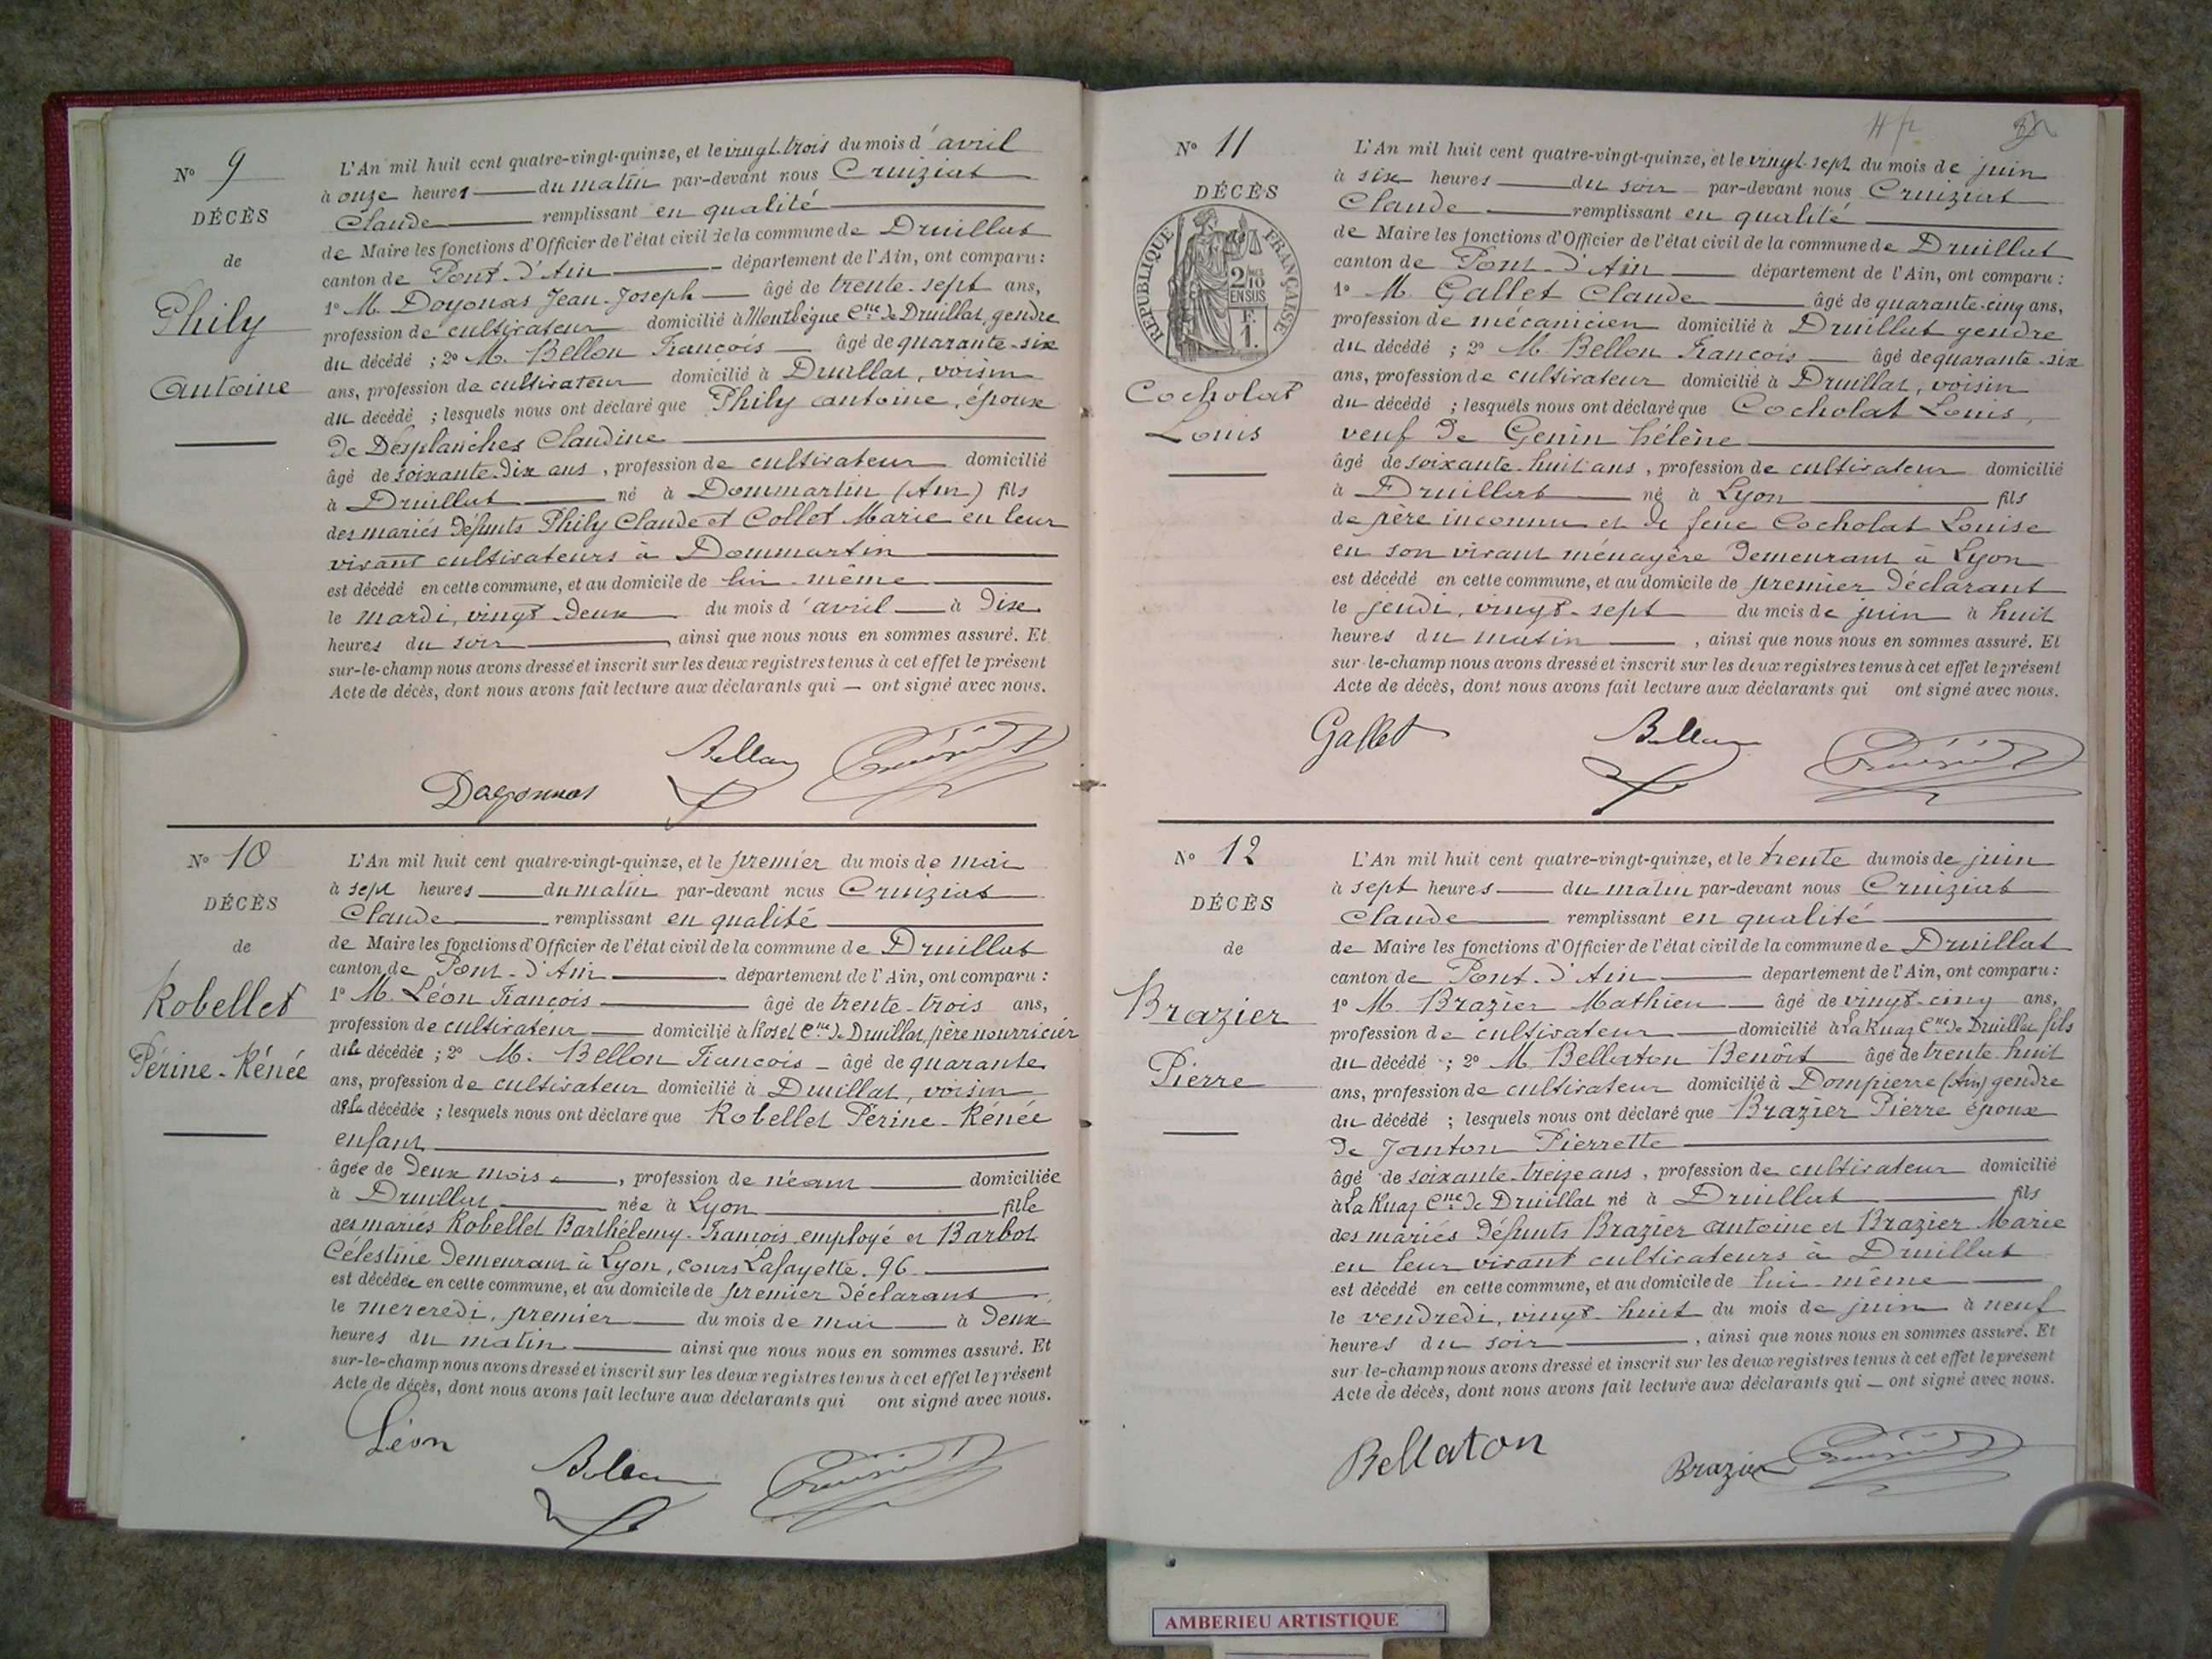 N° 9
DÉCÈS
de
Phily
Antoine
L'An mil huit cent quatre-vingt-quinze, et le vingt-trois du mois d'avril
à onze heures du matin par-devant nous Cruiziat
Claude remplissant en qualité
de Maire les fonctions d'Officier de l'état civil de la commune de Druillat
canton de Pont-d'Ain département de l'Ain, ont comparu :
1° M. Doyonas Jean-Joseph âgé de trente-sept ans,
profession de cultivateur domicilié à Montbègue Cne de Druillat, gendre
du décédé ; 2° M. Bellon François âgé de quarante-six
ans, profession de cultivateur domicilié à Druillat, voisin
du décédé ; lesquels nous ont déclaré que Phily antoine, époux
de Desplanches Claudine
âgé de soixante-dix ans, profession de cultivateur domicilié
à Druillat né à Dommartin (Ain) fils
des mariés défunts Phily Claude et Collet Marie en leur
vivant cultivateurs à Dommartin
est décédé en cette commune, et au domicile de lui-même
le mardi, vingt-deux du mois d'avril à dix
heures du soir ainsi que nous nous en sommes assuré. Et
sur-le-champ nous avons dressé et inscrit sur les deux registres tenus à cet effet le présent
Acte de décès, dont nous avons fait lecture aux déclarants qui — ont signé avec nous.
Doyonnas Bellon Cruiziat
N° 10
DÉCÈS
de
Robellet
Périne-Rénée
L'An mil huit cent quatre-vingt-quinze, et le premier du mois de mai
à sept heures du matin par-devant nous Cruiziat
Claude remplissant en qualité
de Maire les fonctions d'Officier de l'état civil de la commune de Druillat
canton de Pont-d'Ain département de l'Ain, ont comparu :
1° M. Léon François âgé de trente-trois ans,
profession de cultivateur domicilié à Rosel Cne de Druillat, père nourricier
de la décédée ; 2° M. Bellon François âgé de quarante
ans, profession de cultivateur domicilié à Druillat, voisin
de la décédée ; lesquels nous ont déclaré que Robellet Périne-Rénée
enfant
âgée de deux mois, profession de néant domiciliée
à Druillat née à Lyon fille
des mariés Robellet Barthélemy-François employé et Barbot
Célestine demeurant à Lyon, cours Lafayette, 96
est décédée en cette commune, et au domicile de premier déclarant
le mercredi, premier du mois de mai à deux
heures du matin ainsi que nous nous en sommes assuré. Et
sur-le-champ nous avons dressé et inscrit sur les deux registres tenus à cet effet le présent
Acte de décès, dont nous avons fait lecture aux déclarants qui ont signé avec nous.
Léon Bellon Cruiziat
N° 11
DÉCÈS
RÉPUBLIQUE FRANÇAISE
2/10
EN SUS
F.
1.
Cocholat
Louis
L'An mil huit cent quatre-vingt-quinze, et le vingt-sept du mois de juin
à six heures du soir par-devant nous Cruiziat
Claude remplissant en qualité
de Maire les fonctions d'Officier de l'état civil de la commune de Druillat
canton de Pont-d'Ain département de l'Ain, ont comparu :
1° M. Gallet Claude âgé de quarante-cinq ans,
profession de mécanicien domicilié à Druillat gendre
du décédé ; 2° M. Bellon François âgé de quarante-six
ans, profession de cultivateur domicilié à Druillat, voisin
du décédé ; lesquels nous ont déclaré que Cocholat Louis,
veuf de Genin hélène
âgé de soixante-huit ans, profession de cultivateur domicilié
à Druillat né à Lyon fils
de père inconnu et de feue Cocholat Louise
en son vivant ménagère demeurant à Lyon
est décédé en cette commune, et au domicile de premier déclarant
le jeudi, vingt-sept du mois de juin à huit
heures du matin, ainsi que nous nous en sommes assuré. Et
sur-le-champ nous avons dressé et inscrit sur les deux registres tenus à cet effet le présent
Acte de décès, dont nous avons fait lecture aux déclarants qui ont signé avec nous.
Gallet Bellon Cruiziat
N° 12
DÉCÈS
de
Brazier
Pierre
L'An mil huit cent quatre-vingt-quinze, et le trente du mois de juin
à sept heures du matin par-devant nous Cruiziat
Claude remplissant en qualité
de Maire les fonctions d'Officier de l'état civil de la commune de Druillat
canton de Pont-d'Ain departement de l'Ain, ont comparu :
1° M. Brazier Mathieu âgé de vingt-cinq ans,
profession de cultivateur domicilié à La Ruaz Cne de Druillat fils
du décédé ; 2° M. Bellaton Benôit âgé de trente-huit
ans, profession de cultivateur domicilié à Dompierre (Ain) gendre
du décédé ; lesquels nous ont déclaré que Brazier Pierre époux
de Janton Pierrette
âgé de soixante-treize ans, profession de cultivateur domicilié
à La Ruaz Cne de Druillat né à Druillat fils
des mariés défunts Brazier antoine et Brazier Marie
en leur vivant cultivateurs à Druillat
est décédé en cette commune, et au domicile de lui-même
le vendredi, vingt-huit du mois de juin à neuf
heures du soir, ainsi que nous nous en sommes assuré. Et
sur-le-champ nous avons dressé et inscrit sur les deux registres tenus à cet effet le présent
Acte de décès, dont nous avons fait lecture aux déclarants qui — ont signé avec nous.
Bellaton Brazier Cruiziat
AMBERIEU ARTISTIQUE